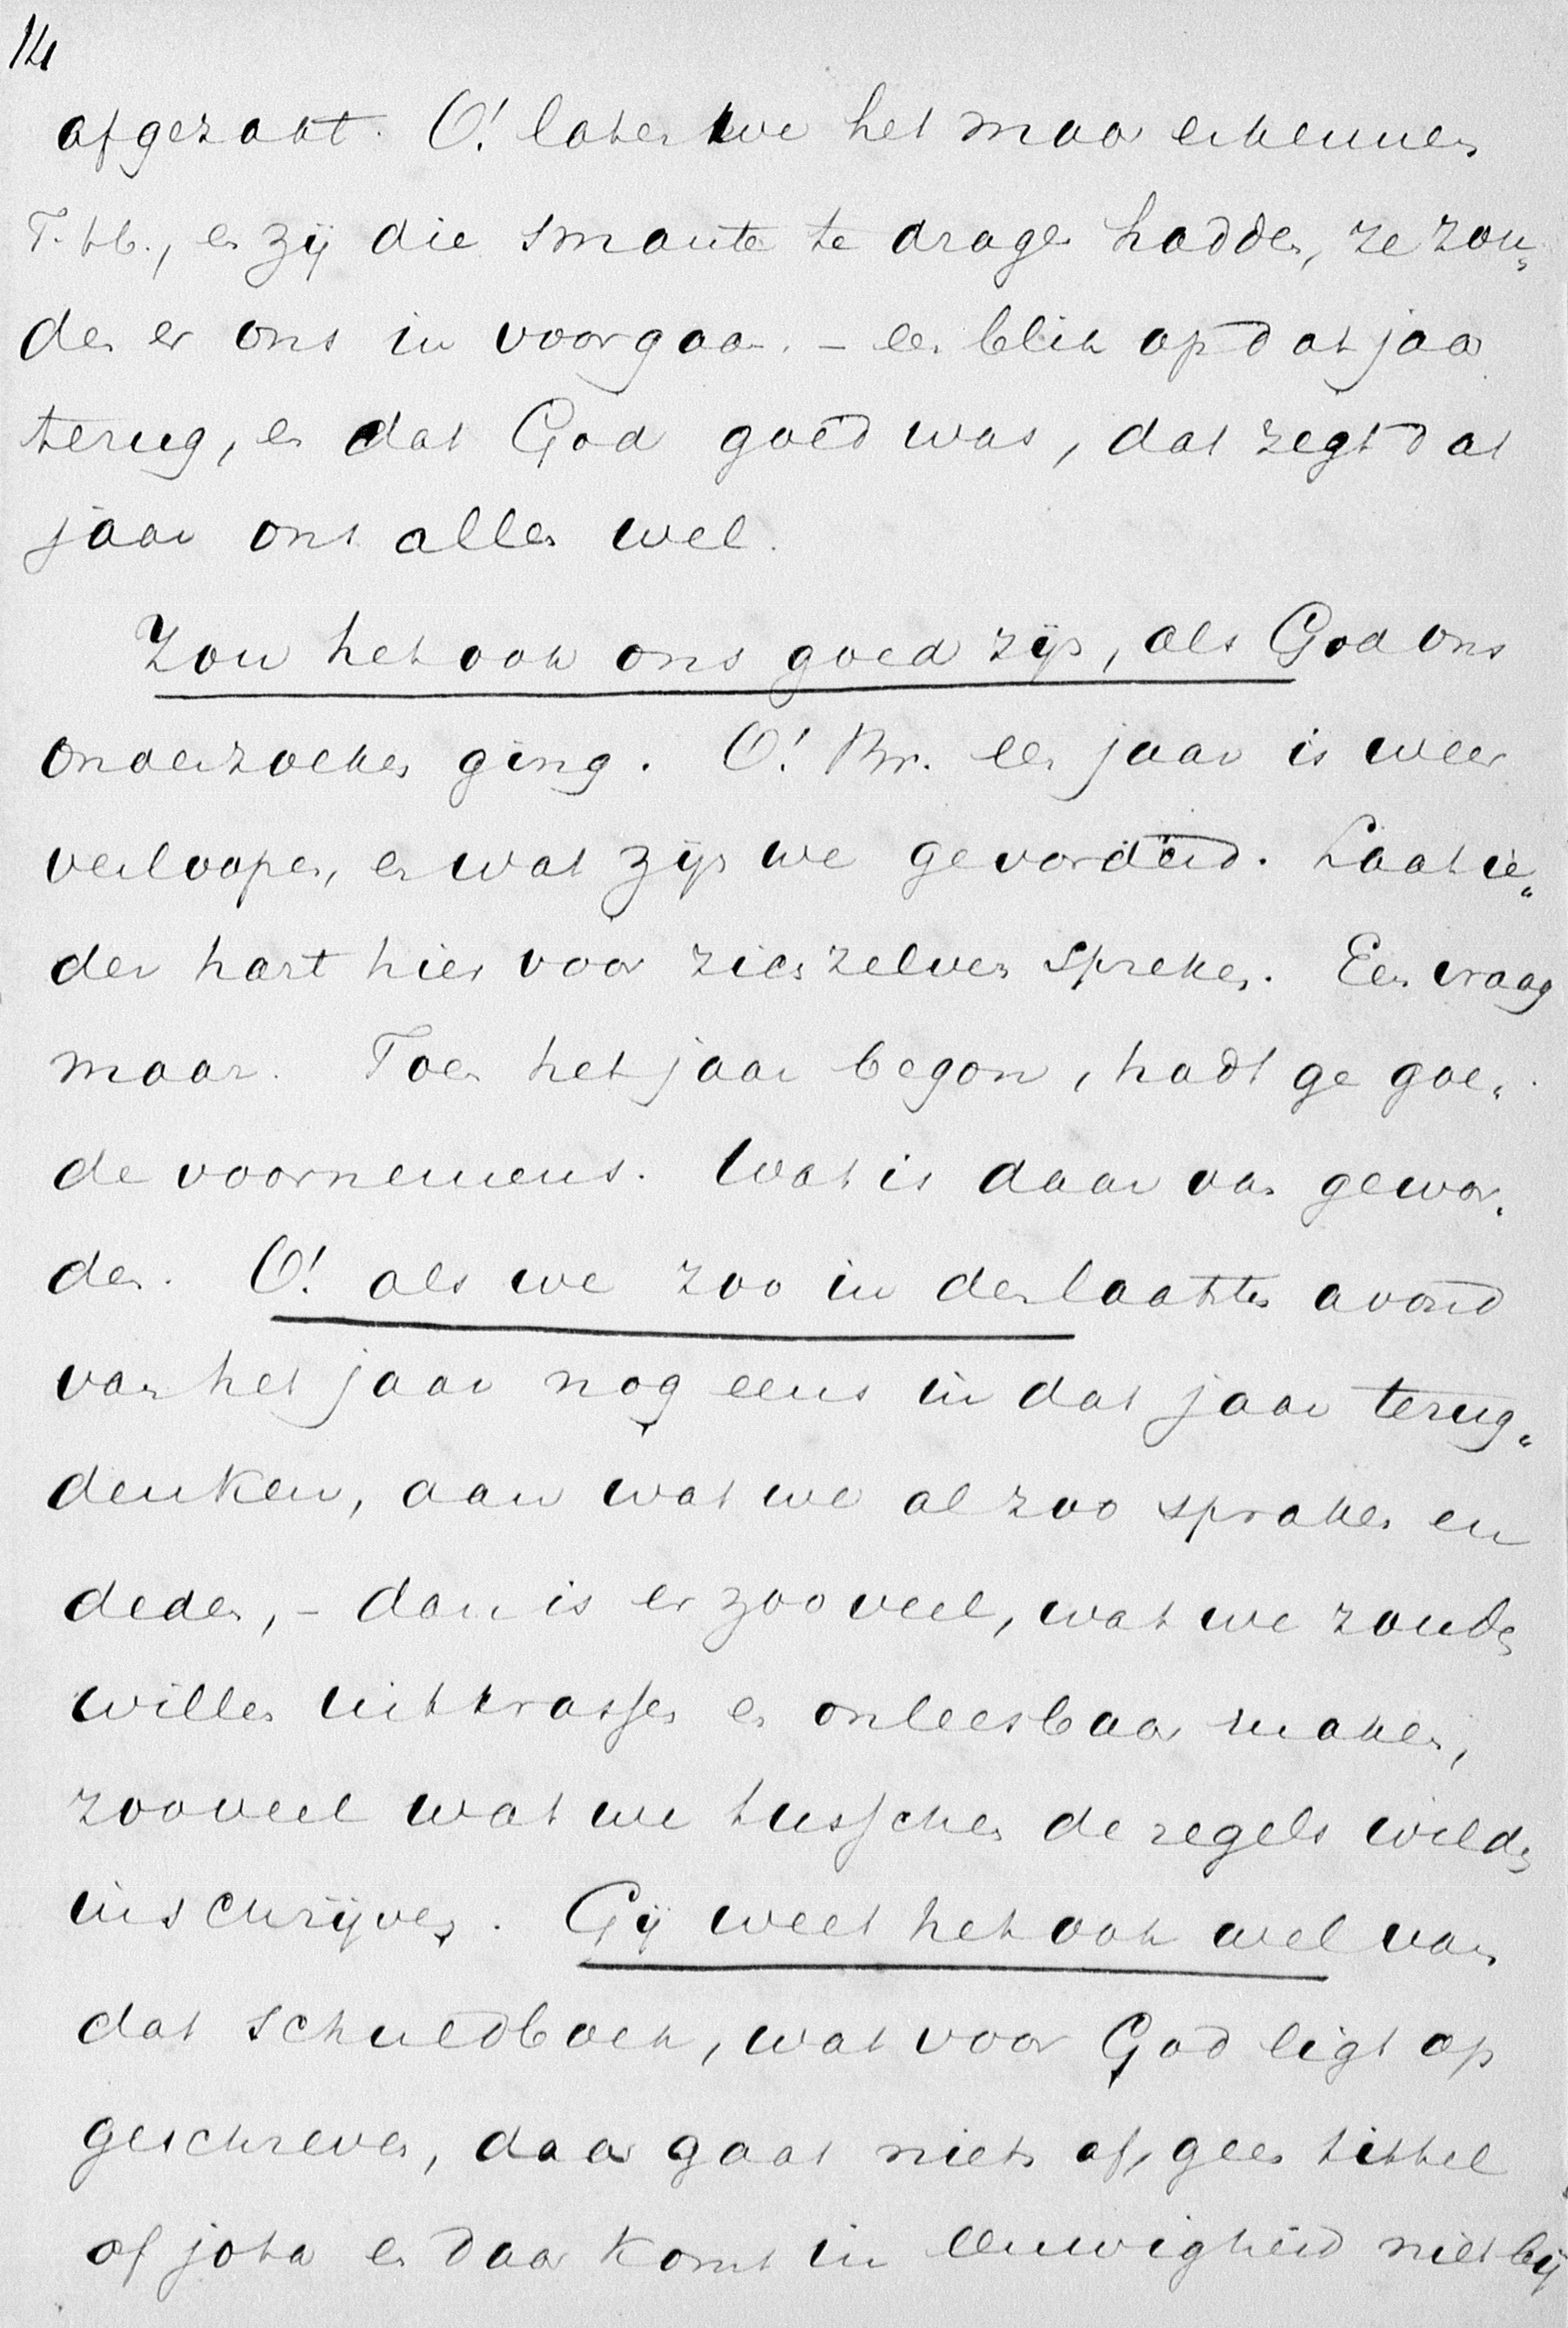 14
afgezakt. O! laten we het maar erkennen
T. hb., en zij die smarte te dragen hadden, ze zou„
den er ons in voorgaan. – een blik op dat jaar
terug, en dat God goed was, dat zegt dat
jaar ons allen wel.
Zou het ook ons goed zijn, als God ons
onderzoeken ging. O! Br. een jaar is weer
verloopen, en wat zijn we gevorderd. Laat ie„
der hart hier voor zich zelven spreken. Een vraag
maar. Toen het jaar begon, hadt ge goe„
de voornemens. Wat is daar van gewor„
den. O! als we zoo in den laatsten avond
van het jaar nog eens in dat jaar terug„
denken, aan wat we al zoo spraken en
deden, – dan is er zooveel, wat we zouden
willen uitkrassen en onleesbaar maken,
zooveel wat we tusschen de regels wilden
inschrijven. Gij weet het ook wel van
dat schuldboek, wat voor God ligt op
geschreven, daar gaat niets af, geen tittel
of jota en daar komt in eeuwigheid niet bij